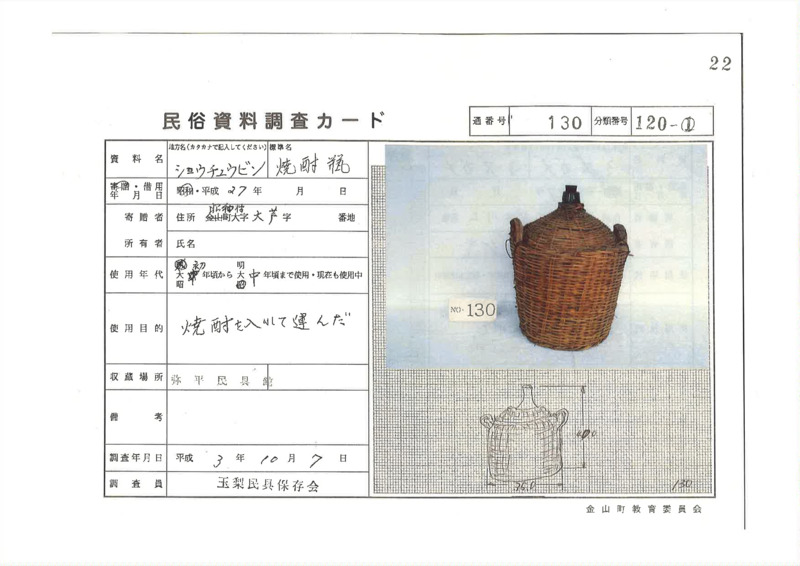 22
民俗資料調査カード
通番号 130 分類番号 120-①
資料名
地方名(カタカナで記入してください) 標準名
ショウチュウビン 焼酎瓶
寄贈・借用
年月日
昭和・平成 27年 月 日
寄贈者
住所 金山町大字大芦字 番地
所有者
氏名
使用年代
初 明
大 年頃から大 中 年頃まで使用・現在も使用中
昭 昭
使用目的
焼酎を入れて運んだ
収蔵場所
弥平民具館
備考
調査年月日
平成 3年10月7日
調査員
玉梨民具保存会
NO.130
36.0
130
金山町教育委員会